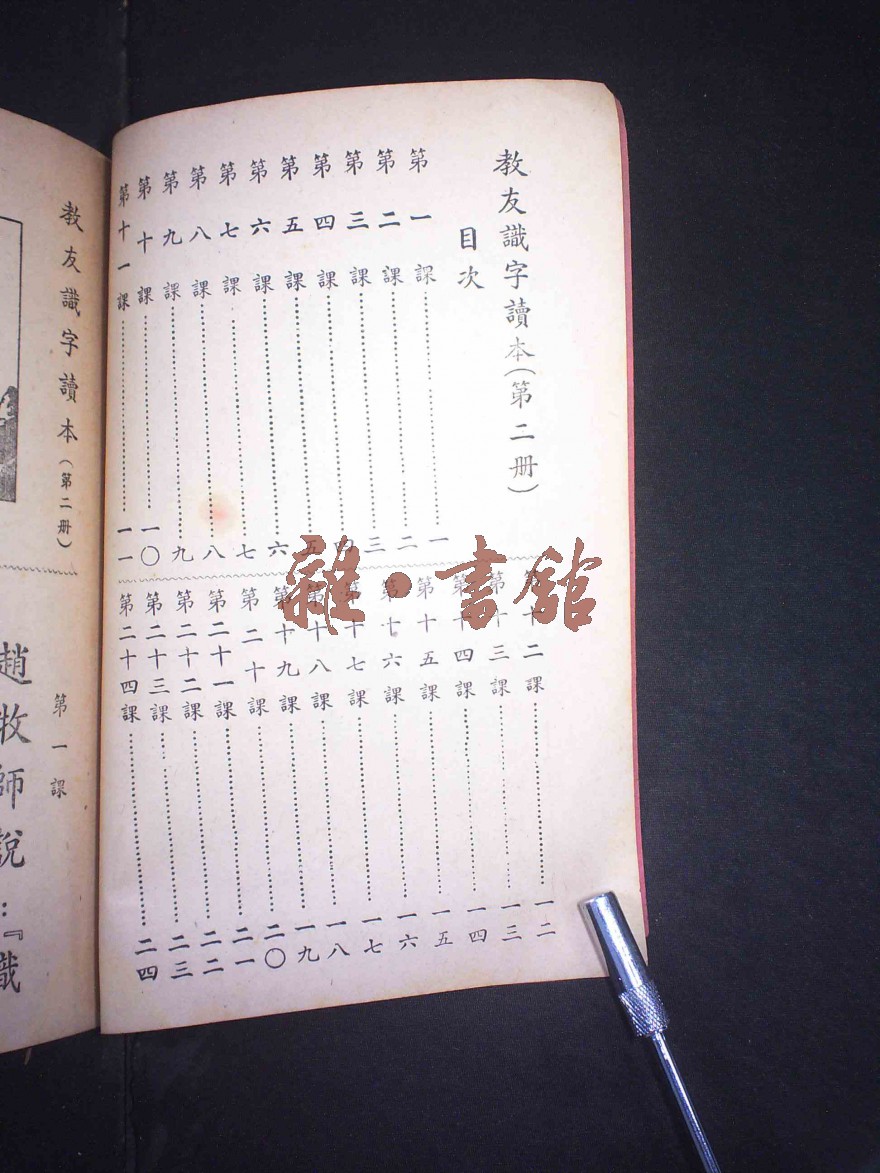 教友識字讀本(第二册)
目次
第一課……一
第二課……二
第三課……三
第四課……四
第五課……五
第六課……六
第七課……七
第八課……八
第九課……九
第十課……一〇
第十一課……一一
第十二課……一二
第十三課……一三
第十四課……一四
第十五課……一五
第十六課……一六
第十七課……一七
第十八課……一八
第十九課……一九
第二十課……二〇
第二十一課……二一
第二十二課……二二
第二十三課……二三
第二十四課……二四
雜·書館
教友識字讀本(第二册)
第一課
趙牧師說:『識